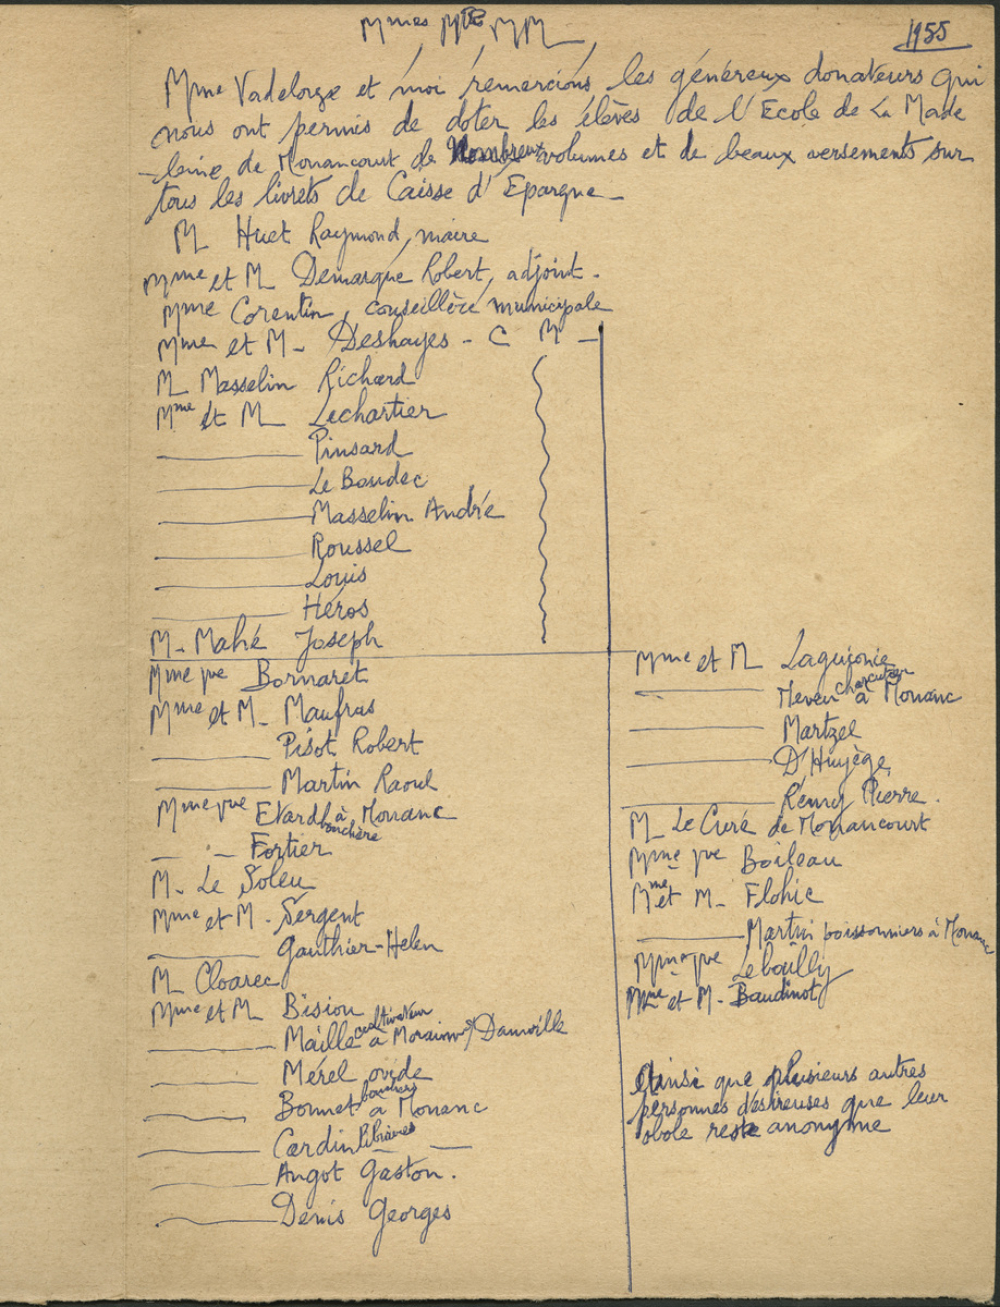 Mmes Mlles MM
1955
Mme Vadelorge et moi remercions les généreux donateurs qui
nous ont permis de doter les élèves de l'Ecole de La Made
-leine de Nonancourt de Nombreux volumes et de beaux versements sur
tous les livrets de Caisse d'Epargne
M Huet Raymond, maire
Mme et M Demarque Robert, adjoint.
Mme Corentin, conseillère municipale
Mme et M. Deshayes - C M -
M Masselin Richard
Mme et M Lechartier
Pinsard
Le Boudec
Masselin André
Roussel
Louis
Héros
M. Mahé Joseph
Mme vve Bornaret
Mme et M. Maufras
Pisot Robert
Martin Raoul
Mme vve Evard à Nonanc
bouchère
Fortier
M. Le Soleu
Mme et M. Sergent
Gauthier-Helen
M Cloarec
Mme et M Bision
cultivateur
Maille à Damville
Mérel ovide
bouchers
Bonnet à Nonanc
Cardin libraires
Angot Gaston.
Denis Georges
Mme et M Lagujonie
charcutier
Neveu à Nonanc
Martzel
D'Huyège
Rémy Pierre.
M Le Curé de Nonancourt
Mme vve Boileau
Mme et M. Flohic
Martin poissonniers à Nonanc
Mme vve Lebailly
Mme et M. Baudinot
Ainsi que plusieurs autres
personnes désireuses que leur
obole reste anonyme